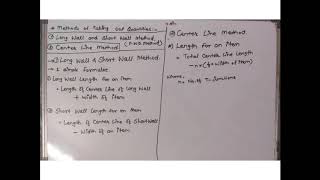 * Methods of Taking Out Quantities :-
① Long Wall and Short Wall Method
② Center Line Method (P.W.D. Method)
→ ① Long Wall & Short Wall Method
* 2 simple formulae
① Long Wall Length for an Item
= Length of Center Line of Long Wall
+ Width of Item
② Short Wall Length for an Item
= Length of Center Line of Short Wall
- Width of an Item
② Center Line Method
* Length for an Item
= Total Center Line Length
- n × (½ × Width of Item)
Where,
n = No. of T- Junctions